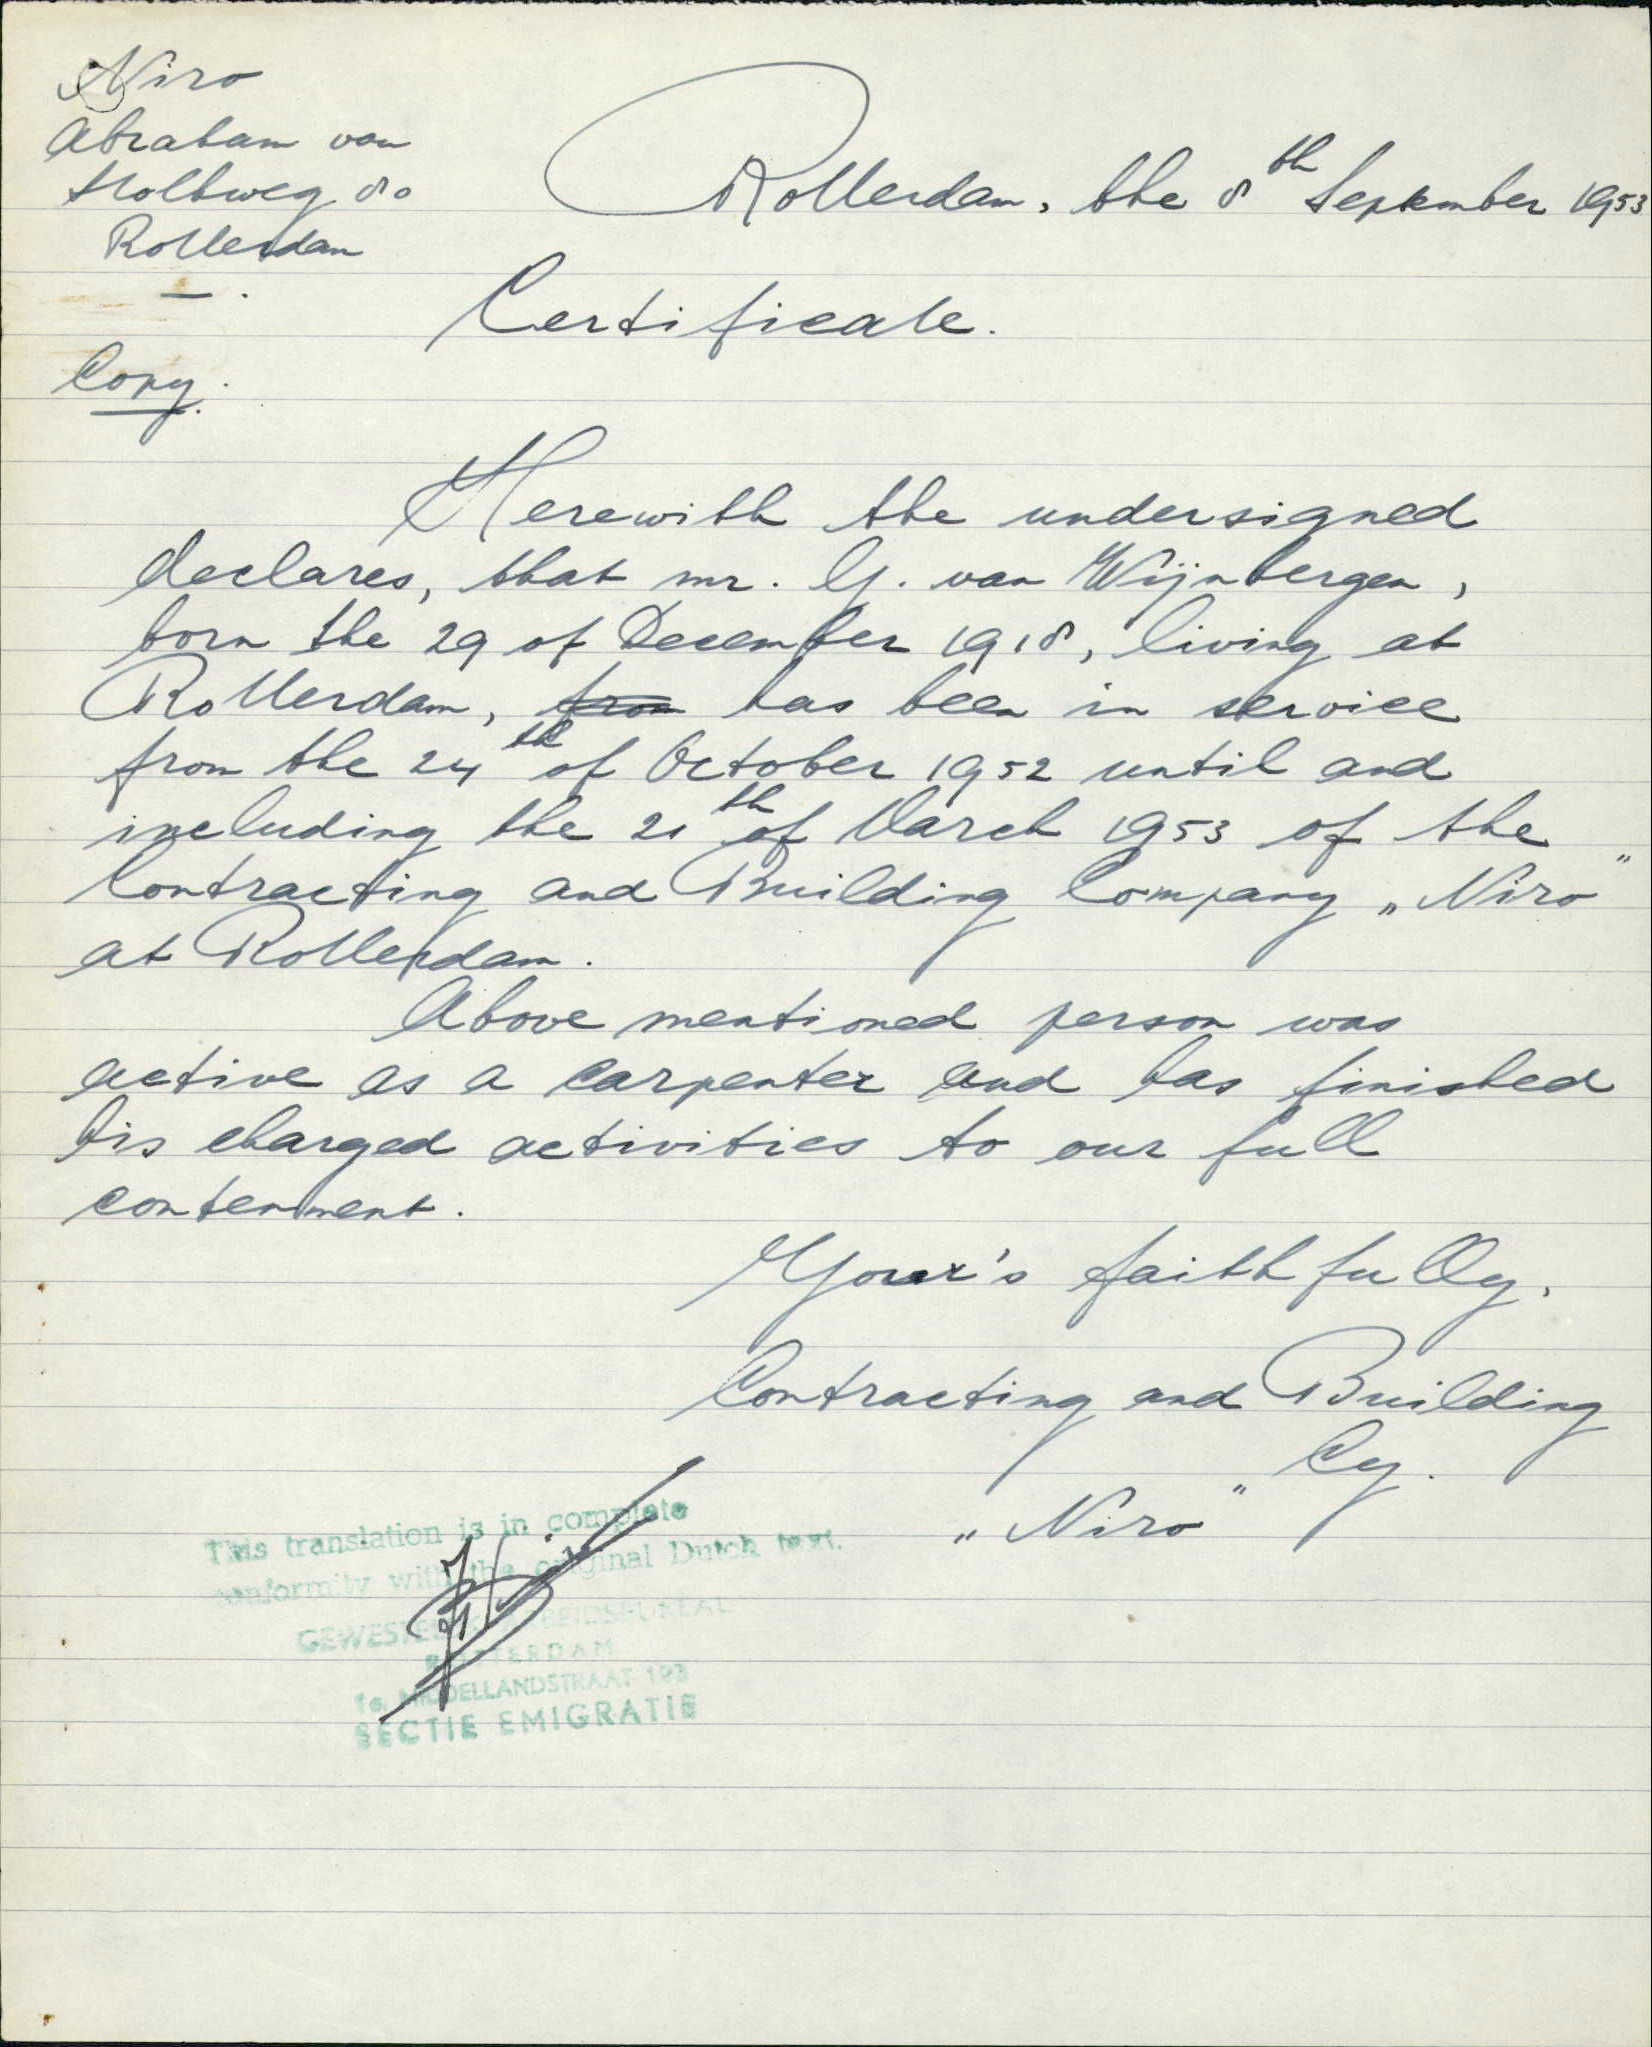 Niro
Abraham van
Stolkweg 80
Rotterdam
—.
Rotterdam, the 8th September 1953
Certificate.
Copy.
Herewith the undersigned
declares, that mr. G. van Wijnbergen,
born the 29 of December 1918, living at
Rotterdam, from has been in service
from the 24th of October 1952 until and
including the 21th of March 1953 of the
Contracting and Building Company „Niro"
at Rotterdam.
Above mentioned person was
active as a carpenter and has finished
his charged activities to our full
contenment.
Your's faithfully,
Contracting and Building
Cy.
„Niro"
This translation is in complete
conformity with the original Dutch text.
GEWESTELIJK ARBEIDSBUREAU
ROTTERDAM
1e MIDDELLANDSTRAAT 103
SECTIE EMIGRATIE